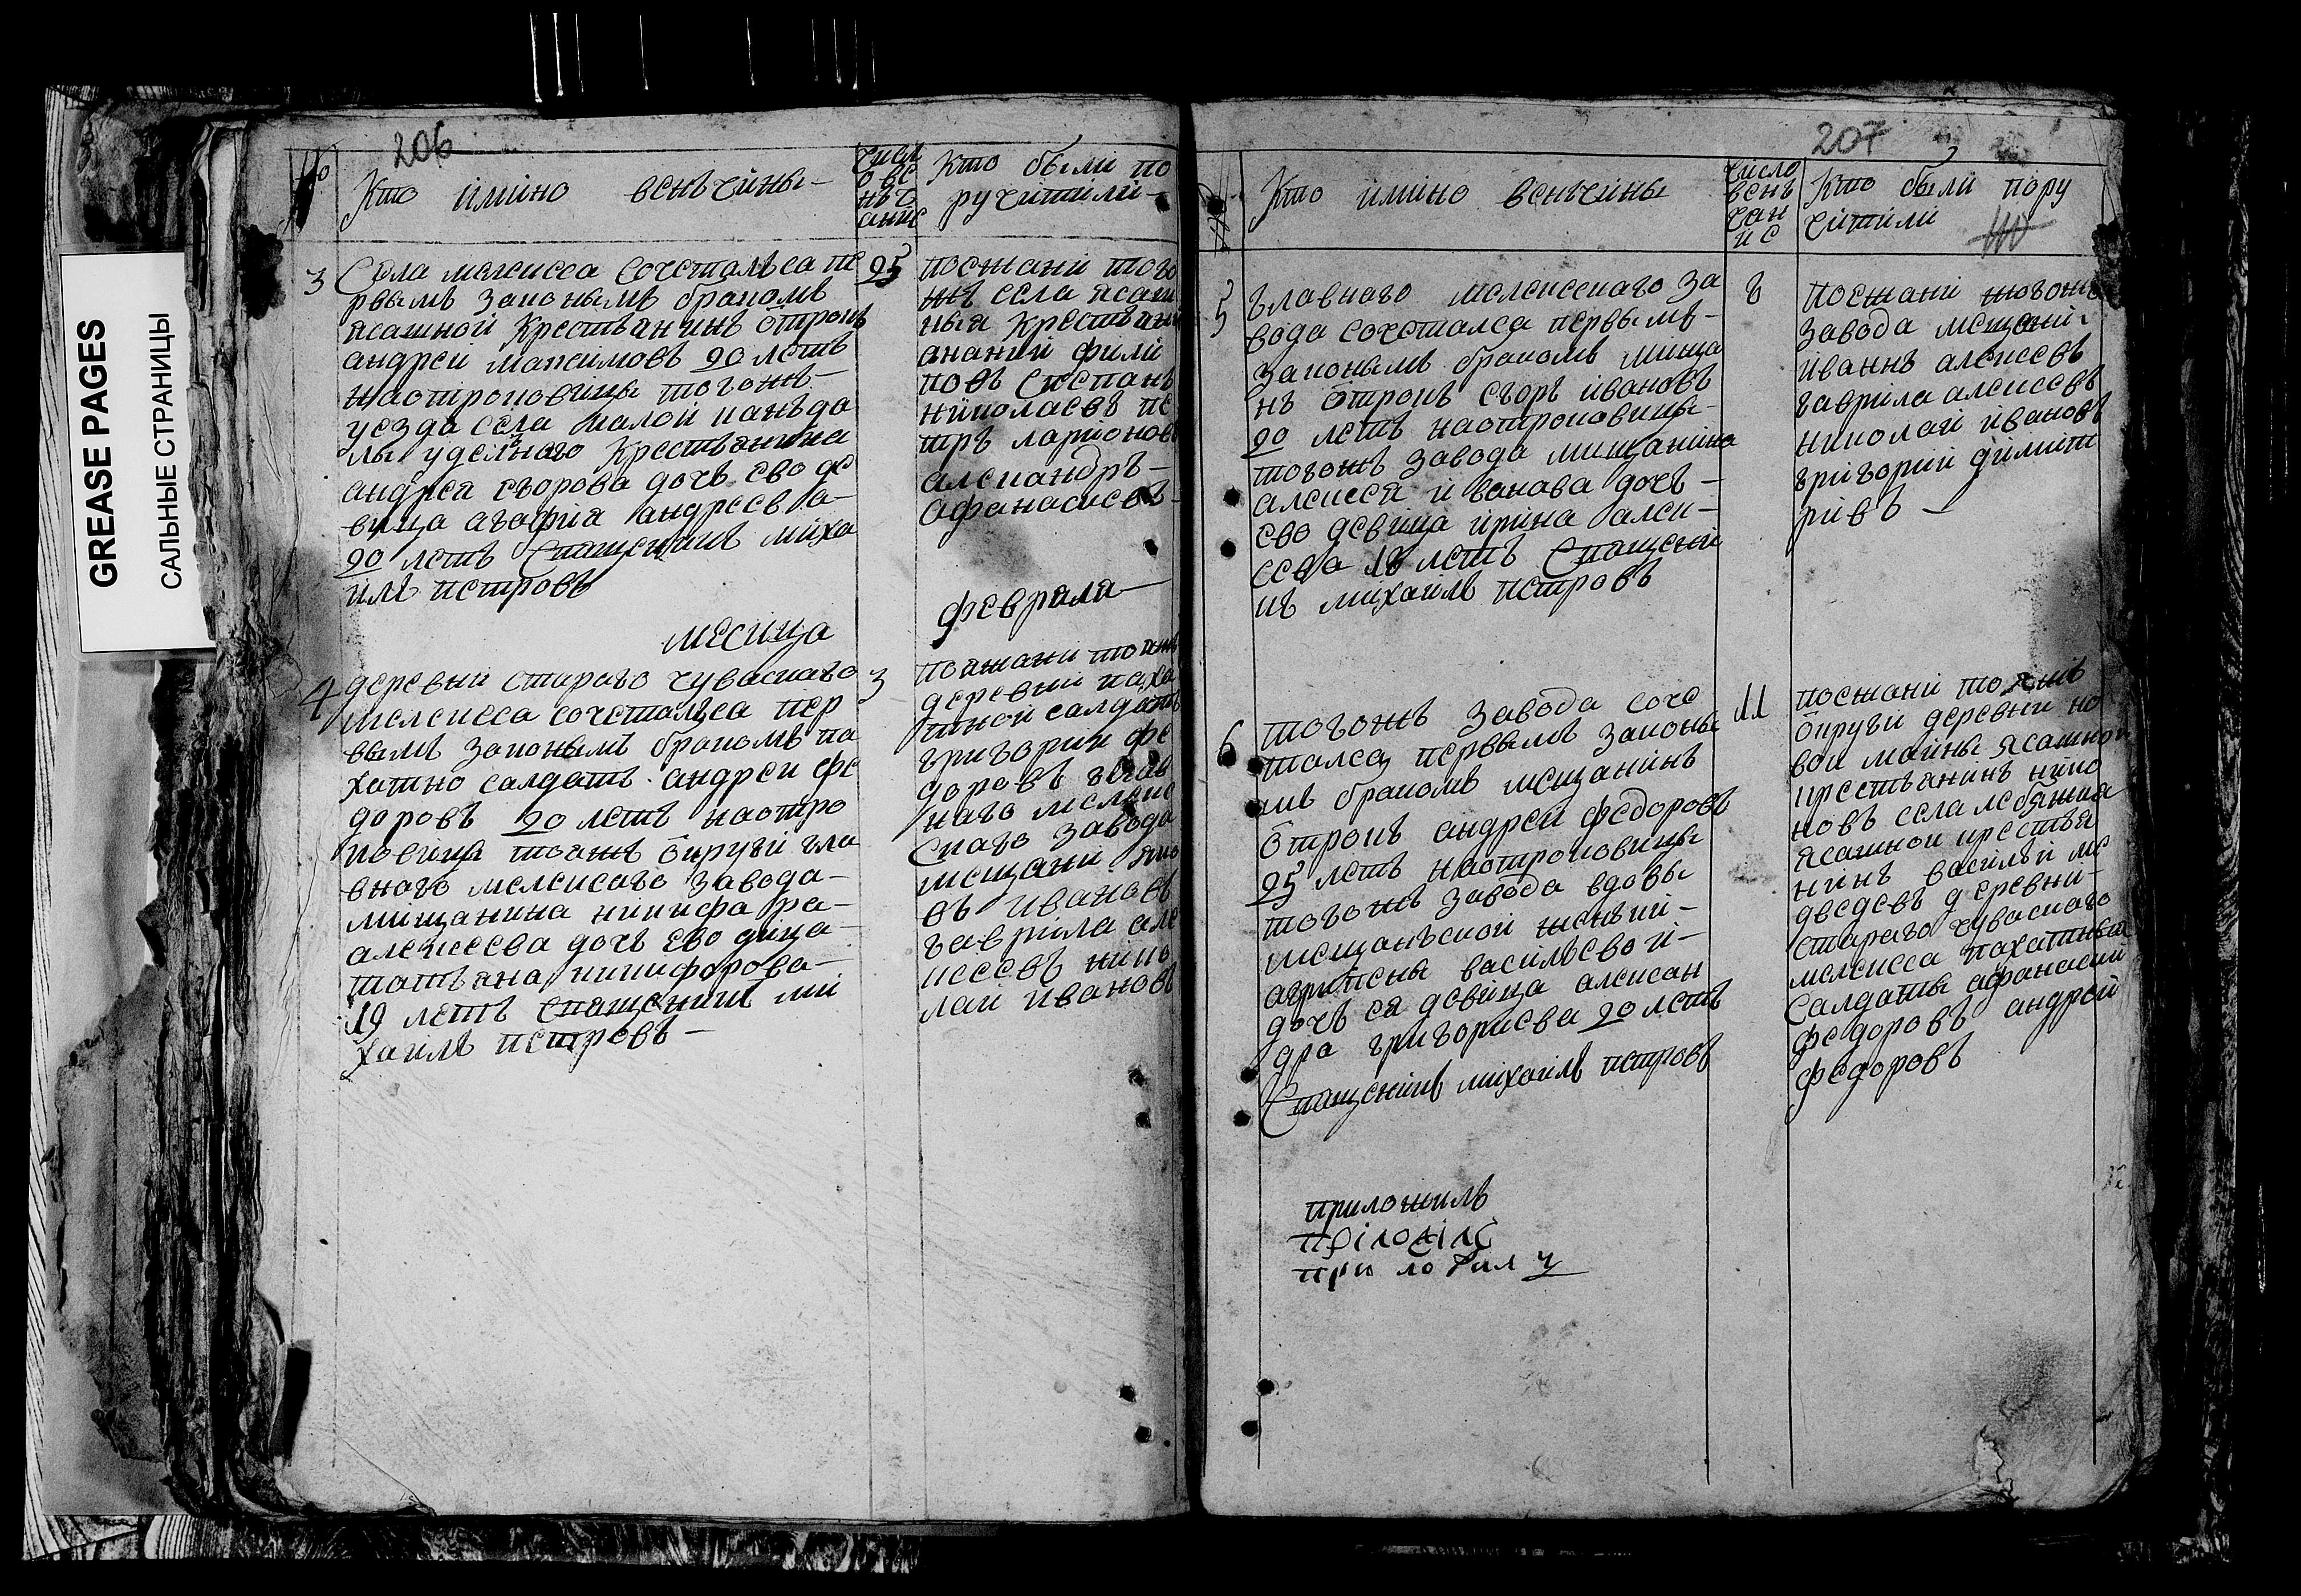 GREASE PAGES
САЛЬНЫЕ СТРАНИЦЫ
206
№
Кто имино венъчины
число венъчание
Кто были по
ручители
3
Села мелкисса сочеталъса пе
рвымъ законымъ бракомъ
ясашной крестьянинъ отрокъ
андреи максимовъ 20 летъ
наотроковицы тогожъ
уезда села малой канъда
лы уделнаго крестьянина
андрея егорова дочъ ево де
вица агафия андреева
20 летъ Спащеникъ миха
илъ петровъ
25
поежани того
жъ села ясаш
ныя крестьян
ананий фили
повъ степанъ
николаевъ пе
тръ ларионовъ
алесандръ
афанасиевъ
месица
февраля
4
деревни старого чуваскаго
мелкесса сочеталъса пер
вымъ законымъ бракомъ па
хатно салдатъ андреи фе
доровъ 20 летъ наотро
ковица тояжъ округи гла
внаго мелкесаго завода
мищанина никифара
алексеева дочъ ево дица
татьяна никифорова
19 летъ спащеникъ ми
хаилъ петровъ
3
поежани тояжъ
деревни паха
тной салдатъ
григории фе
доровъ глав
наго мелкис
скаго завода
мещани яко
въ ивановъ
гаврила але
ксеевъ нико
лаи ивановъ
207
Кто имино венъчины
число
венъ
чан
и е
Кто были пору
чители
5
главнаго мелекескаго за
вода сочеталса первымъ
законымъ бракомъ мища
нъ отрокъ егоръ ивановъ
20 летъ наотроковицы
тогожъ завода мищанина
алексея иванова дочъ
ево девица ирина алек
сеева 18 летъ Спащени
къ михаилъ петровъ
8
поежани тогожъ
завода мещани
иваннъ алексеевъ
гаврила алексеевъ
николаи ивановъ
григории димит
ривъ
6
тогожъ завода соче
талса первымъ законы
мъ бракомъ мещанинъ
отрокъ андреи федоровъ
25 летъ наотроковицы
тогожъ завода вдовы
мещанъской женъки
агрипены василъевой
дочъ ея девица алексан
дра григориева 20 летъ
Спащеникъ михаилъ петровъ
11
поежани тояжъ
округи деревни но
вои майны ясашной
крестьянинъ нико
новъ села лебяжья
ясашной крестья
нинъ василъи ме
дведевъ деревни
стараго чуваскаго
мелкесса пахатные
Салдаты афанасии
федоровъ андрей
федоровъ
приложилъ